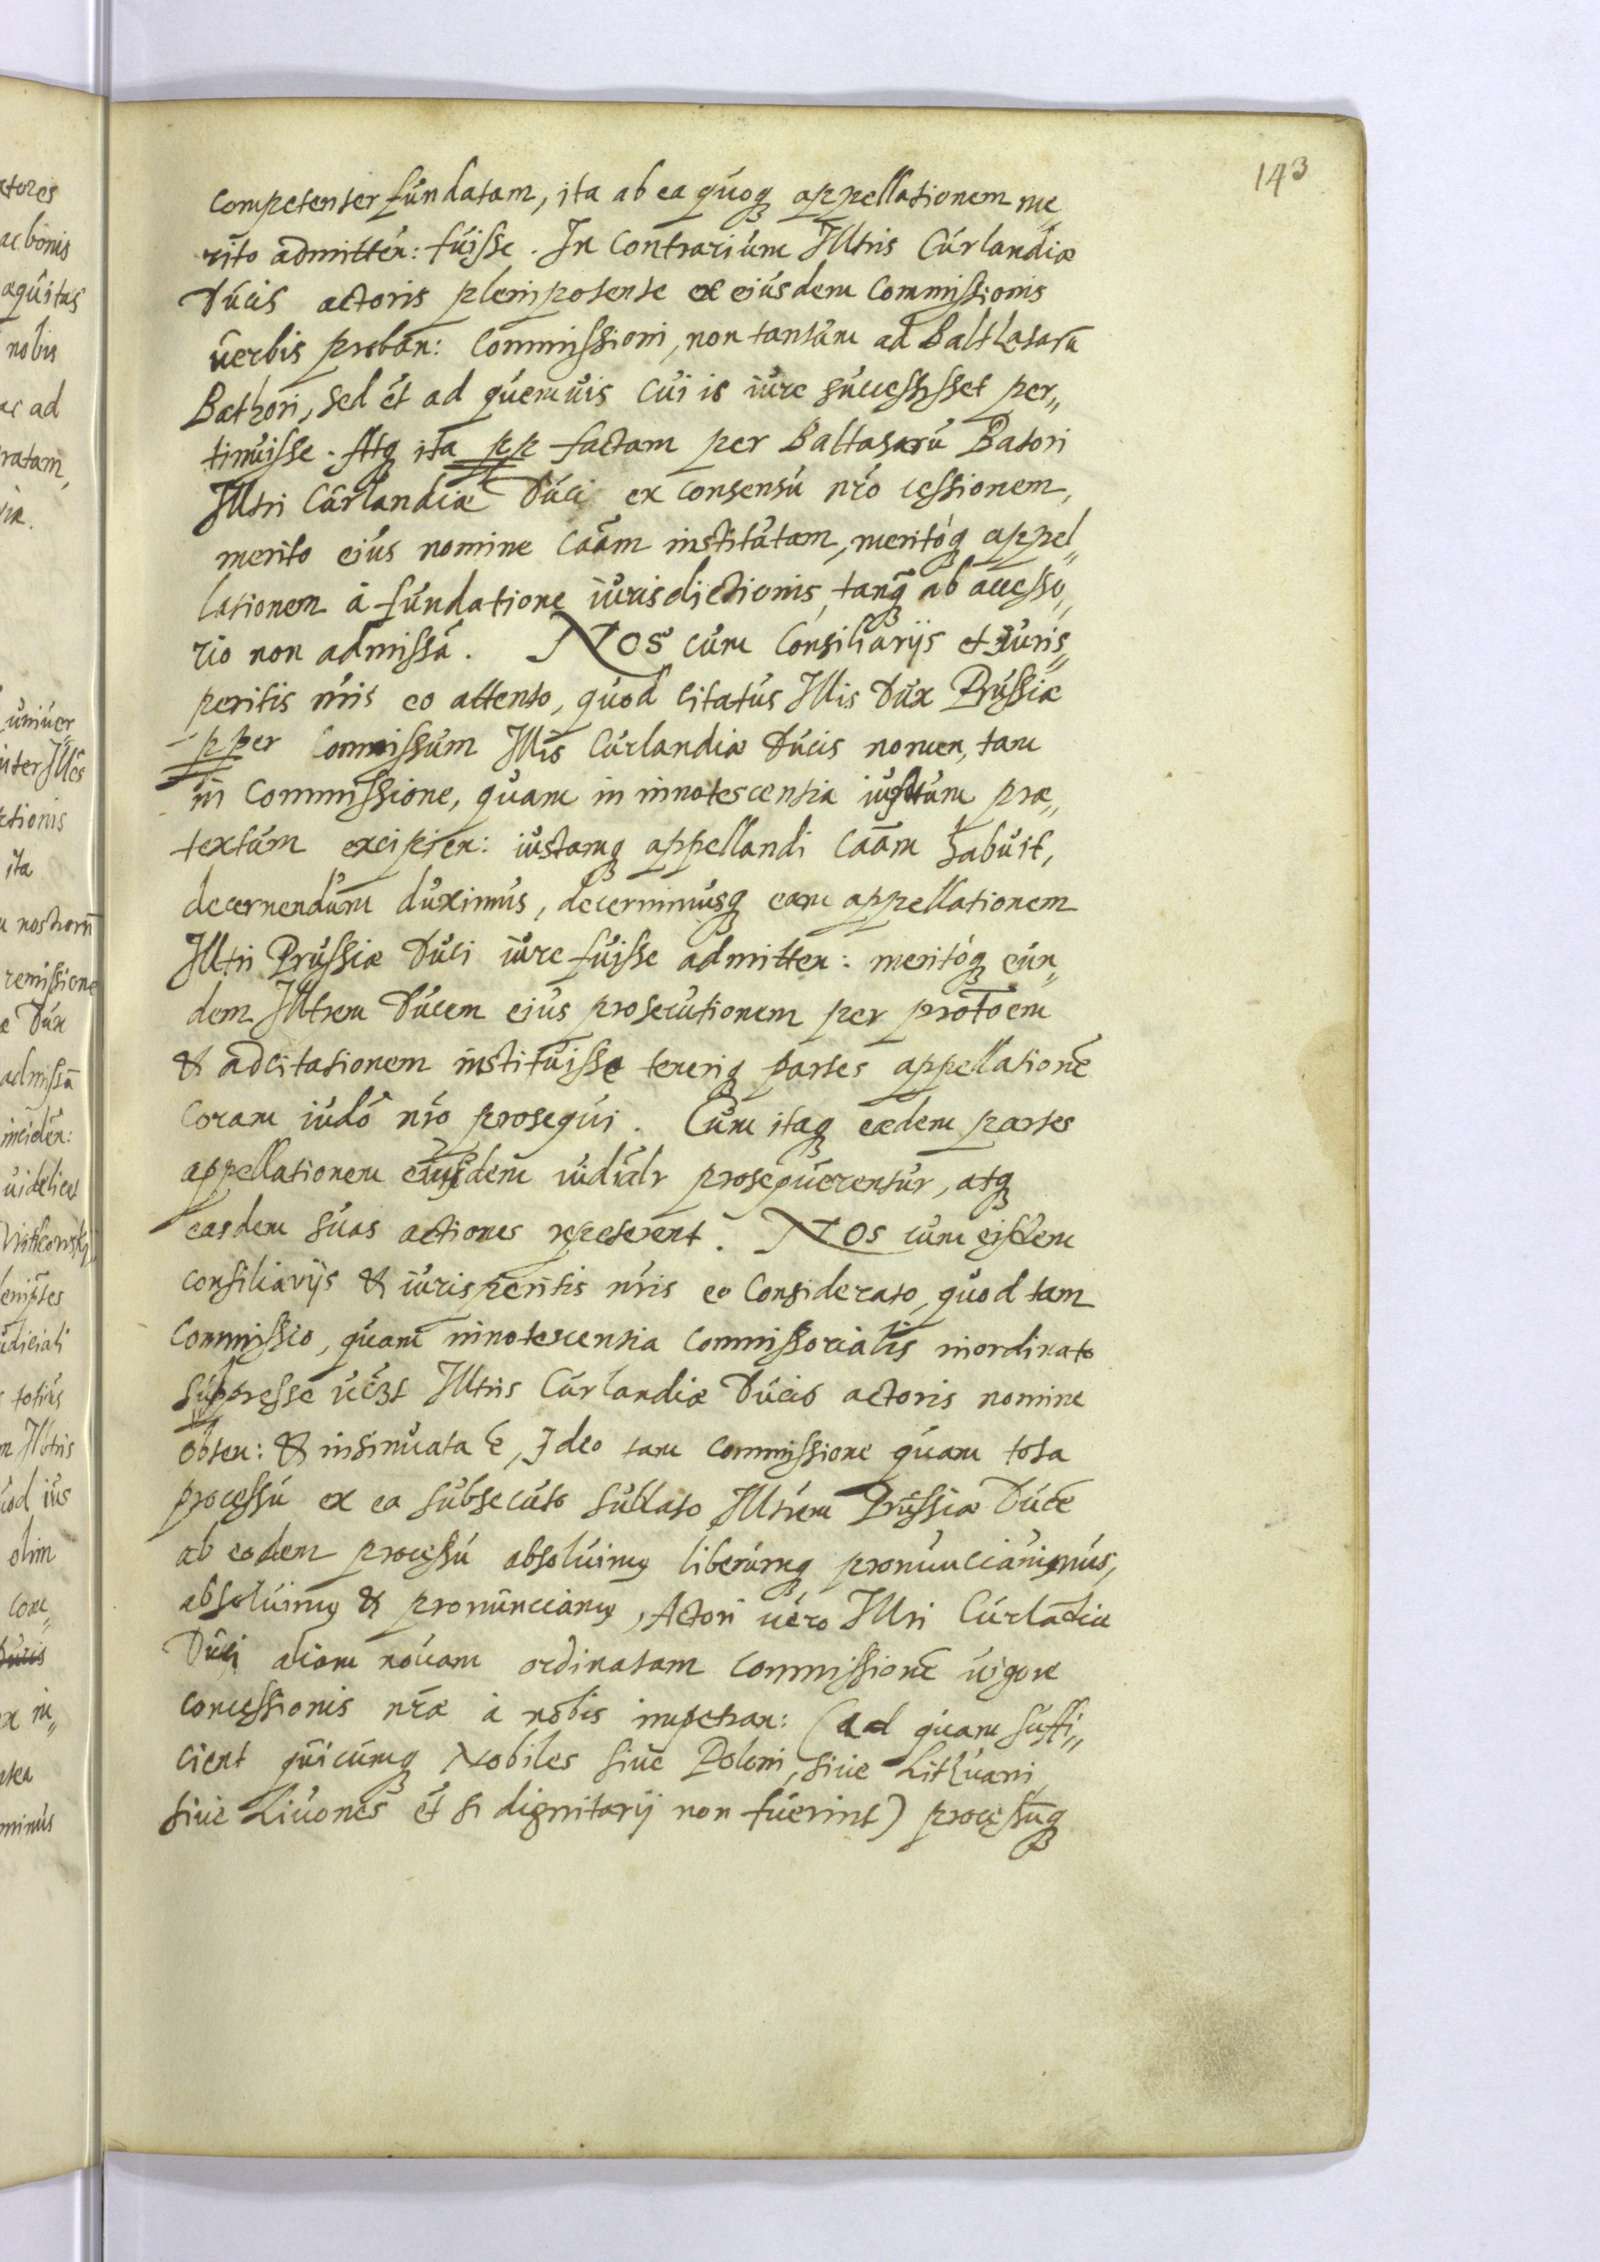 143
competenter fundatam, ita ab ea quoq appellationem me„
rito admitten: fuisse. In contrarium Illtris Curlandiæ
Ducis actoris plenipotente ex eiusdem Commissionis
uerbis proban: Commissioni, non tantum ad Balthasarū
Bathori, sed et ad quemuis cui is iure successisset per„
tinuisse. Atq ita pp factam per Baltasarū Batori
Illtri Curlandiæ Duci ex consensu nr̄o cessionem,
merito eius nomine caām institutam, meritóq appel„
lationem à fundatione iurisdictionis, tanq̄ ab accesso„
rio non admissā. Nos cum Consiliarijs et iuris„
peritis nr̄is eo attento, quod citatus Illis Dux Prussiæ
pper commissum Illis Curlandiæ Ducis nomen, tam
in Commissione, quam in innotescentia iustum præ„
textum excipien: iustamq appellandi caām habuit,
decernendum duximus, decernimusq eam appellationem
Illtri Prussiæ Duci iure fuisse admitten: meritóq eun„
dem Illtrem Ducem eius prosecutionem per prot̄oem
& adcitationem instituisse tenerig partes appellationē
coram iudō nr̄o prosequi. Cum itaq eædem partes
appellationem eiusdem iudiālr prosequerentur, atq
easdem suas actiones repeterent. Nos cum eisdem
consiliarijs & iurisperitis nr̄is eo considerato, quod tam
Commissio, quam innotescentia commissorialis inordinato
suppresse Illtris Curlandiæ Ducis actoris nomine
obten: & insinuata ē, Ideo tam commissione quam tota
processu ex ea subsecuto sublato Illtrem Prussiæ Ducē
ab eodem processu absoluimq liberumq pronunciauimus,
absoluimq & pronunciamq, Actori uero Illtri Curlādiæ
Duci aliam nouam ordinatam commissionē uigore
concessionis nr̄æ à nobis impetran: (ad quam suffi„
cient quicumq Nobiles siue Poloni, siue Lithuani,
siue Liuones et si dignitarij non fuerint) processūq